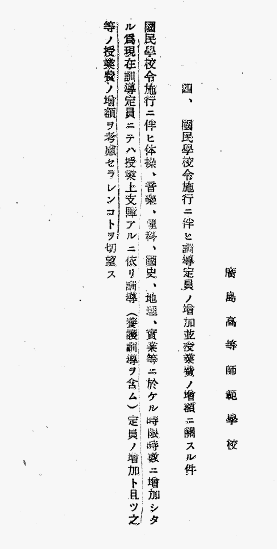 廣島高等師範學校
四、國民學校令施行ニ伴ヒ訓導定員ノ增加並授業費ノ增額ニ關スル件
國民學校令施行ニ伴ヒ体操、音樂、理科、國史、地理、實業等ニ於ケル時限時數ニ增加シタ
ル爲現在訓導定員ニテハ授業上支障アルニ依リ訓導（養護訓導ヲ含ム）定員ノ增加ト且ツ之
等ノ授業費ノ增額ヲ考慮セラレンコトヲ切望ス